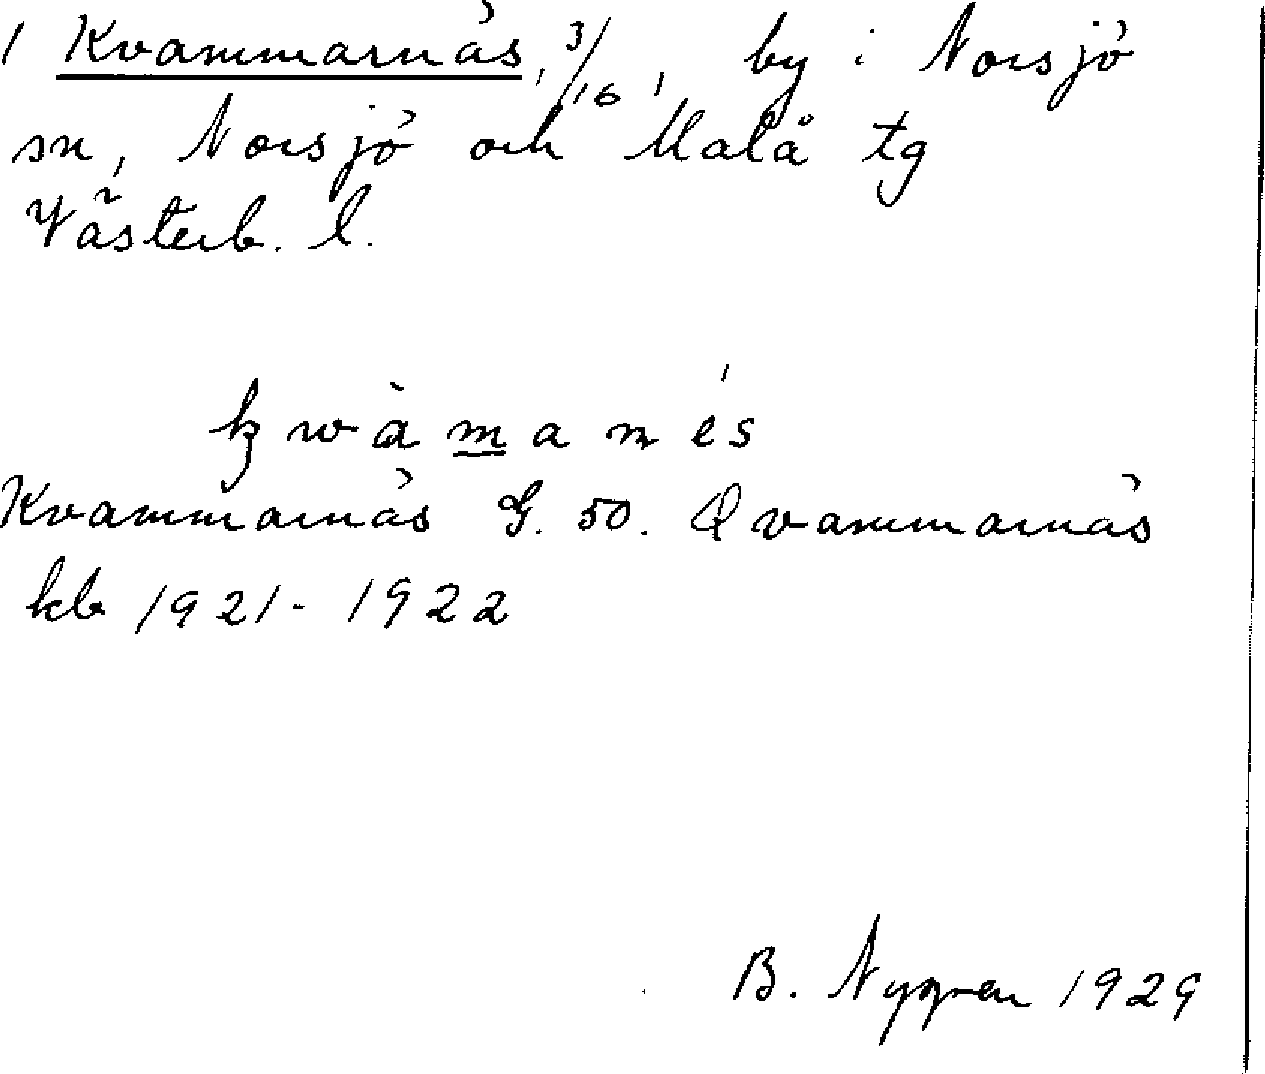 1 Kvammarnäs, 3/16, by i Norsjö
sn, Norsjö och Malå tg
Västerb. l.
kwàmanés
Kvammarnäs G. 50. Qvammarnäs
kb 1921-1922
B. Nygren 1929